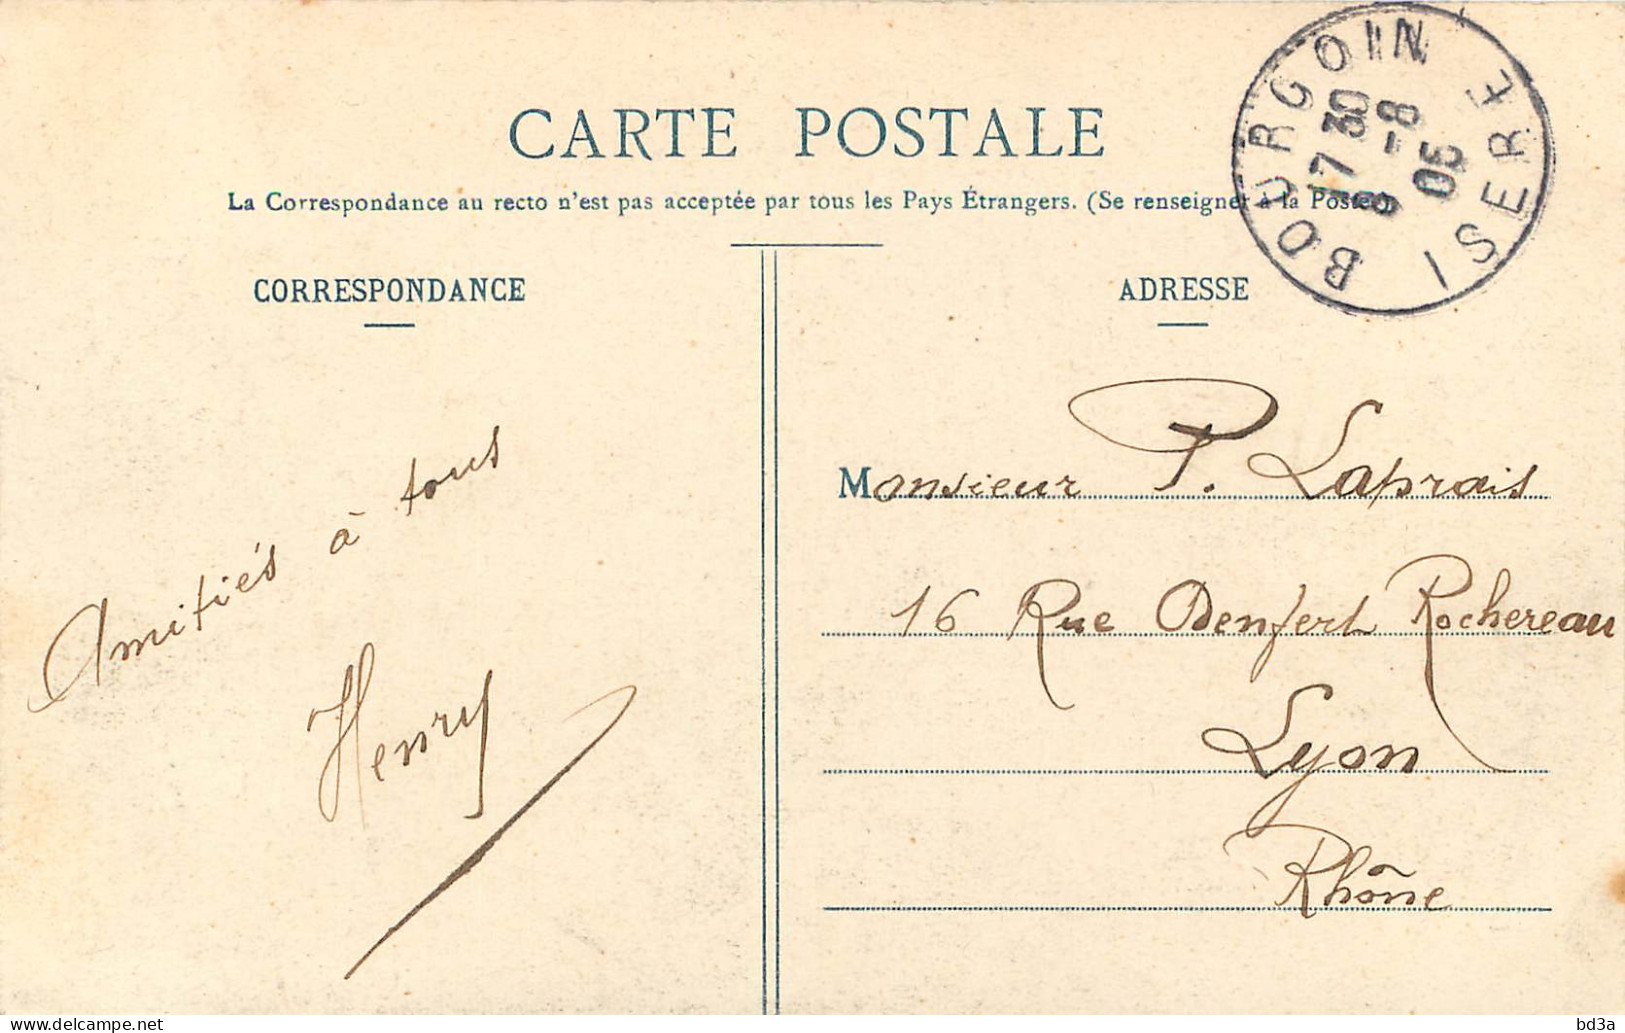 CARTE POSTALE
La Correspondance au recto n'est pas acceptée par tous les Pays Étrangers. (Se renseigner à la Poste)
BOURGOIN ISERE
17 30
8 -8
05
CORRESPONDANCE
ADRESSE
Amitiés à tous
Henry
Monsieur P. Laprais
16 Rue Denfert Rochereau
Lyon
Rhône
delcampe.net
bd3a